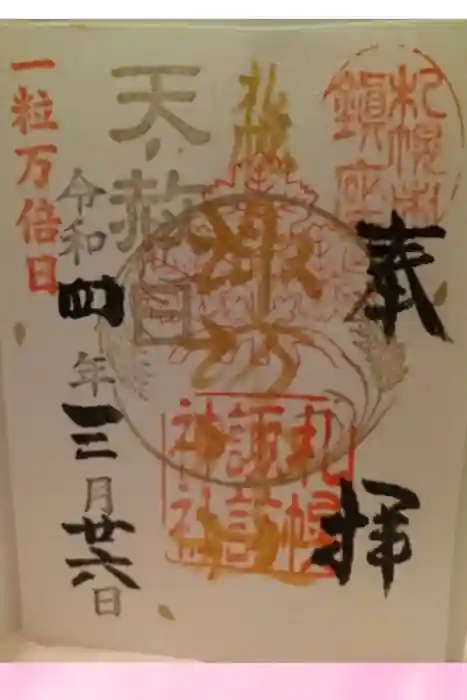 奉拝
札幌
鎮座
札幌
諏訪
神社
札幌
諏訪
神社
天赦日
令和四年三月廿六日
一粒万倍日